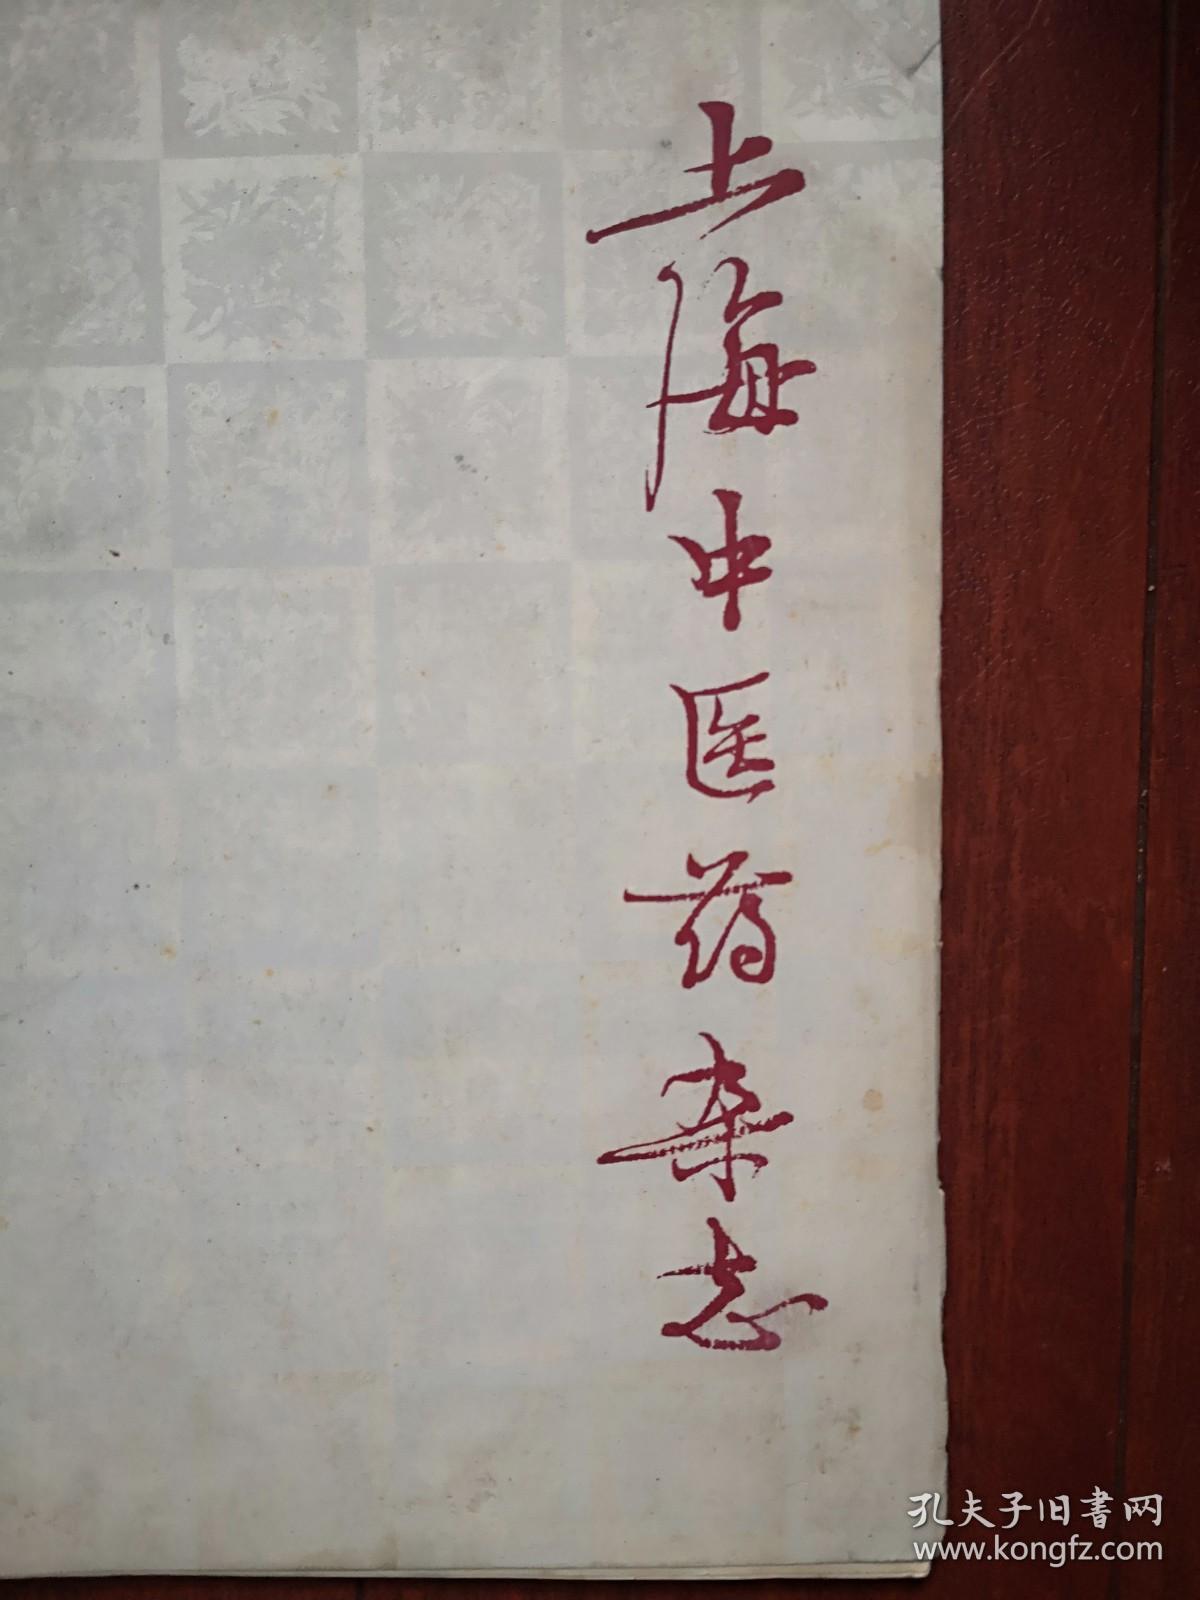 上海中医药杂志
孔夫子旧書网
www.kongfz.com